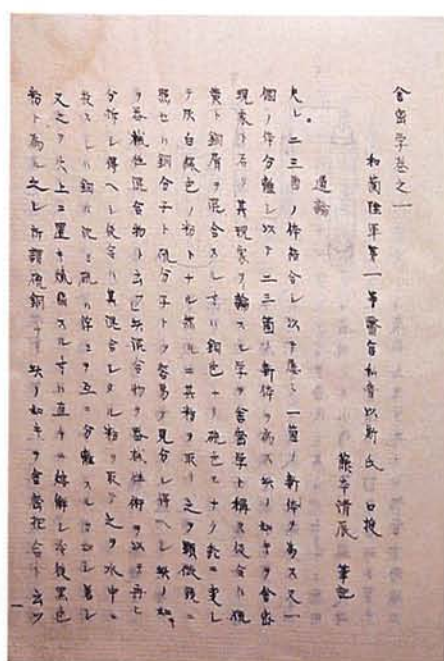 舎密学巻之一
和蘭陸軍第一等醫官 氏 口授
藤本清辰 筆記
通論
夫レ二三箇ノ体抱合シ以テ悉ク一箇ノ新体ヲ為ス又一
個ノ体分離シ以テ二三箇ノ新体ヲ為ス此ノ如キヲ舎密
現象ト云フ其現象ヲ論スル学ヲ舎密学ト稱ス仮令ハ硫
黄ト銅屑ヲ混合スレ寸ハ銅色ナク硫色モナク乾ニ変シ
テ灰白緑色ノ粉トナル然ルニ其粉ヲ取リ之ヲ顕微鏡ニ
照セハ銅分子ト硫分子トヲ容易ク見分シ得ヘシ此ノ如
ヲ器械性混合物ト云フ此混合物ヲ器械性術ヲ以テ再ヒ
分析シ得ヘシ仮令ハ其混合シタル粉ヲ取リ之ヲ水中ニ
投スレハ銅ハ沈ミ硫ハ浮ミテ互ニ分離スル 若シ
又之ヲ火上ニ置キ 寸ハ直チニ熔解シ冷後黒色
粉ト為ル之レ所謂硫銅ナリ此ノ如キヲ舎密抱合ト云フ
一